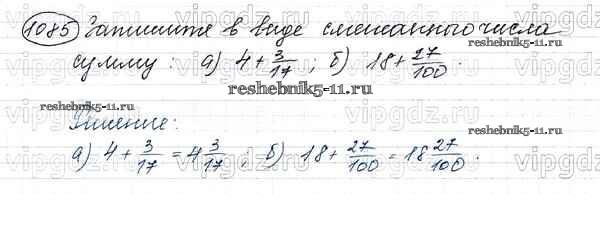 1085 Запишите в виде смешанного числа
reshebnik5-11.ru
сумму: а) 4 + 3/17; б) 18 + 27/100.
reshebnik5-11.ru
reshebnik5-11.ru
Решение:
а) 4 + 3/17 = 4 3/17, б) 18 + 27/100 = 18 27/100.
vipgdz.ru